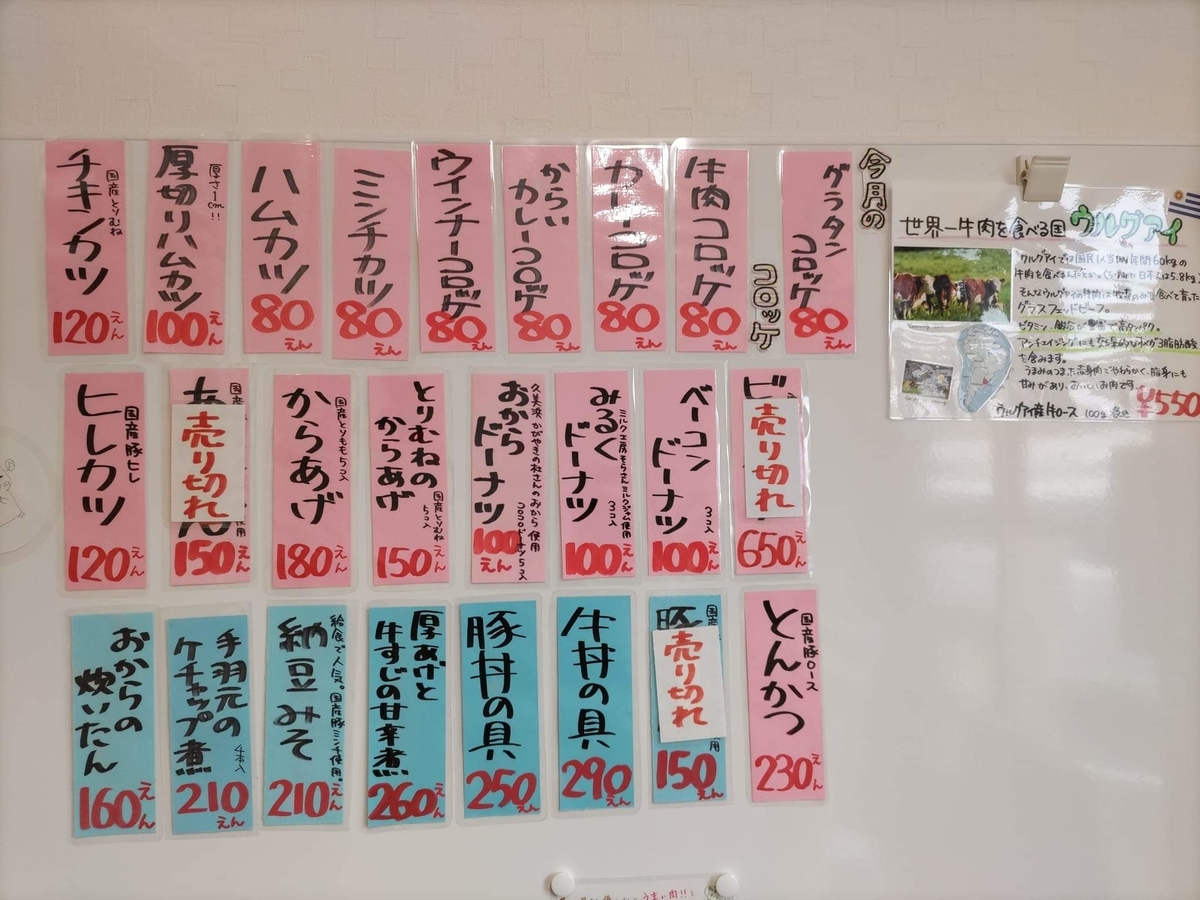 今月の
コロッケ
グラタン
コロッケ
80えん
牛肉コロッケ
80えん
カレーコロッケ
80えん
からい
カレーコロッケ
80えん
ウインナーコロッケ
80えん
ミンチカツ
80えん
ハムカツ
80えん
厚さ1cm!!
厚切りハムカツ
100えん
国産とりむね
チキンカツ
120えん
売り切れ
650えん
ベーコン
ドーナツ
3コ入
100えん
ミルク工房そらさんミルクジャム使用
みるく
ドーナツ
3コ入
100えん
久美浜かがやきの杜さんのおから使用
おから
ドーナツ
コロコロドーナツ5コ入
100えん
とりむねの
からあげ
国産とりむね
5コ入
150えん
国産とりもも5コ入
からあげ
180えん
売り切れ
150えん
国産豚ヒレ
ヒレカツ
120えん
国産豚ロース
とんかつ
230えん
売り切れ
150えん
牛丼の具
290えん
豚丼の具
250えん
厚あげと
牛すじの甘辛煮
260えん
給食で人気。国産豚ミンチ使用。
納豆みそ
210えん
手羽元の
ケチャップ煮
4本入
210えん
おからの
炊いたん
160えん
世界一牛肉を食べる国 ウルグアイ
ウルグアイでは国民1人当り年間60kgの
牛肉を食べるんだとか。(ちなみに日本人は5.8kg)
そんなウルグアイの牛肉は牧草のみを食べて育った
グラスフェッドビーフ。
ビタミン、鉄分が豊富で高タンパク。
アンチエイジングにも効果的なオメガ3脂肪酸
を含みます。
うまみのつまった赤身肉でやわらかく、脂身にも
甘みがあり、おいしいお肉です。
ウルグアイ産牛ロース 100g 税込
¥550
うまい肉!!